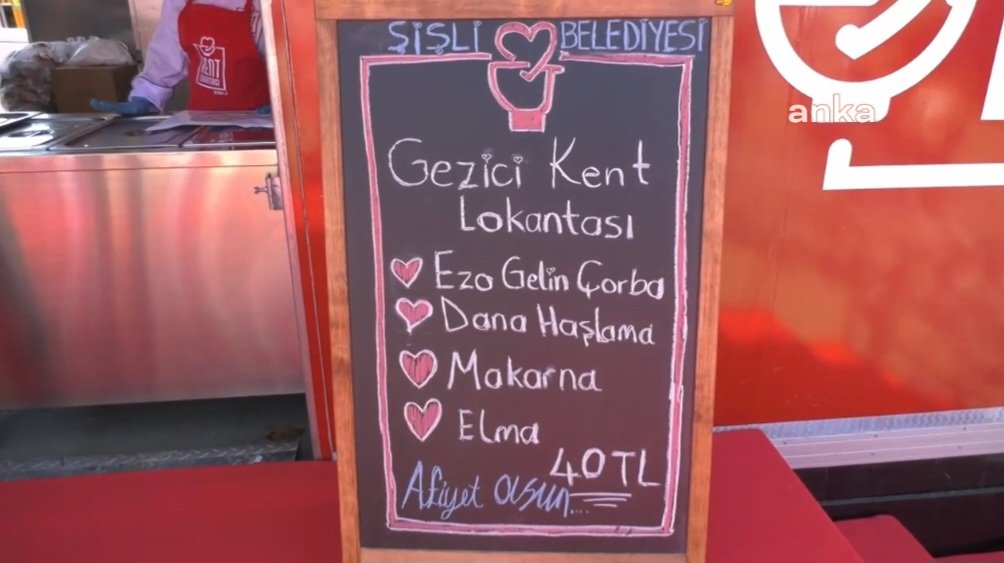 ŞİŞLİ BELEDİYESİ
KENT
anka
Gezici Kent
Lokantası
Ezo Gelin Çorba
Dana Haşlama
Makarna
Elma
40TL
Afiyet olsun...